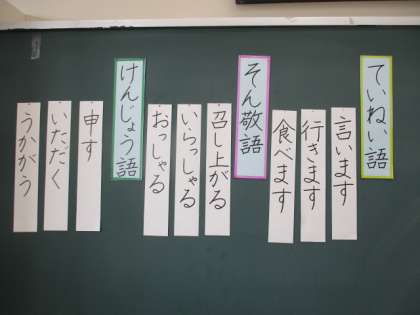 ていねい語
言います
行きます
食べます
そん敬語
召し上がる
いらっしゃる
おっしゃる
けんじょう語
申す
いただく
うかがう